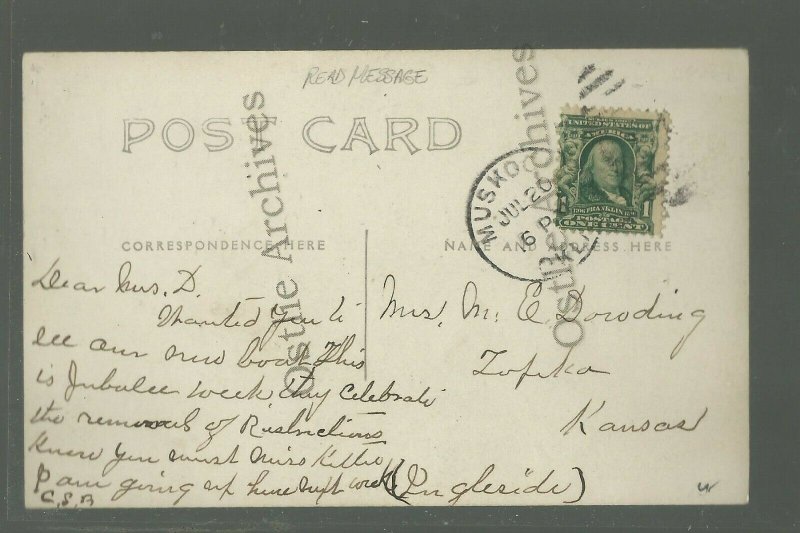 READ MESSAGE
POST CARD
Ostie Archives
Ostie Archives
MUSKO
JUL 20
6 P
UNITED STATES OF
AMERICA
FRANKLIN
POSTAGE
1 ONE CENT 1
CORRESPONDENCE HERE
NAME AND ADDRESS HERE
Dear Mrs. D.
Wanted you to
see our new boat, This
is Jubalee week they celebrate
the removal of Restrictions
Know you must miss Kittie
I am going up home next week
C.S.B
Mrs. M. E. Dowding
Topeka
Kansas
(Ingleside)
w